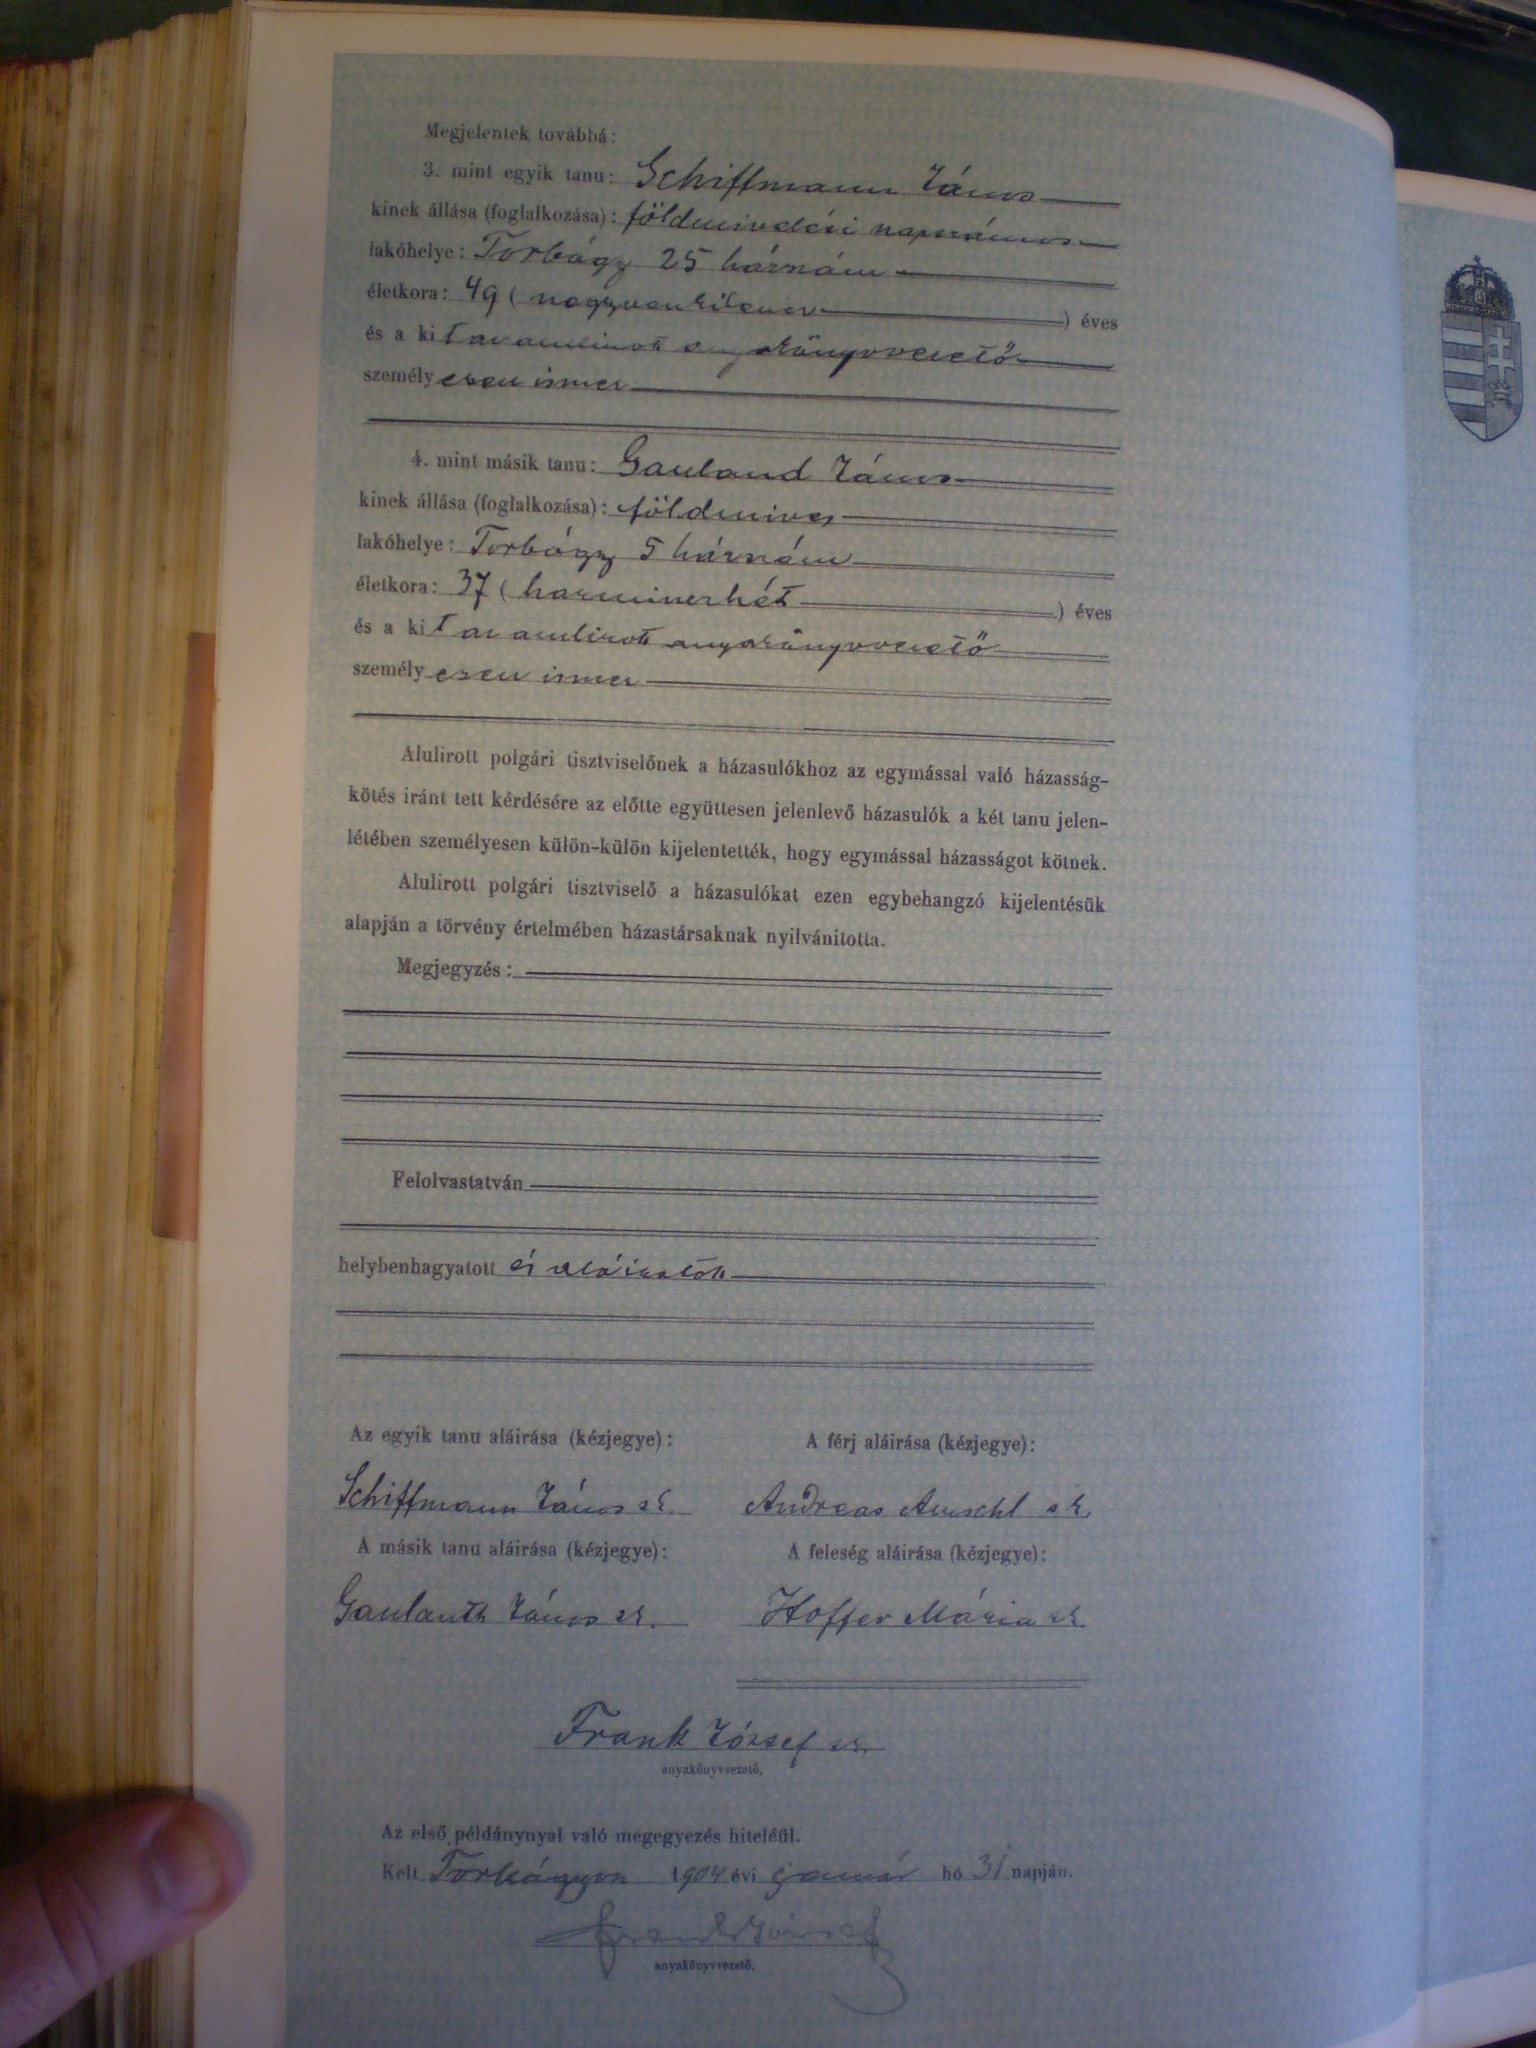 Megjelentek továbbá:
3. mint egyik tanu: Schiffmann János
kinek állása (foglalkozása): földmivelési napszámos
lakóhelye: Torbágy 25 házszám
életkora: 49 (negyvenkilenc) éves
és a kit az alulirott anyakönyvvezető
személyesen ismer
4. mint másik tanu: Gauland János
kinek állása (foglalkozása): földmives
lakóhelye: Torbágy 5 házszám
életkora: 37 (harminczhét) éves
és a kit az alulirott anyakönyvvezető
személyesen ismer
Alulirott polgári tisztviselőnek a házasulókhoz az egymással való házasság-
kötés iránt tett kérdésére az előtte együttesen jelenlevő házasulók a két tanu jelen-
létében személyesen külön-külön kijelentették, hogy egymással házasságot kötnek.
Alulirott polgári tisztviselő a házasulókat ezen egybehangzó kijelentésük
alapján a törvény értelmében házastársaknak nyilvánitotta.
Megjegyzés:
Felolvastatván
helybenhagyatott és aláiratott
Az egyik tanu aláirása (kézjegye): A férj aláirása (kézjegye):
Schiffmann János sk. Andreas Amschl sk.
A másik tanu aláirása (kézjegye): A feleség aláirása (kézjegye):
Gaulanth János sk. Hoffer Mária sk.
Frank József sk.
anyakönyvvezető.
Az első példánynyal való megegyezés hiteléül.
Kelt Torbágyon 1904 évi január hó 31 napján.
Frank József
anyakönyvvezető.